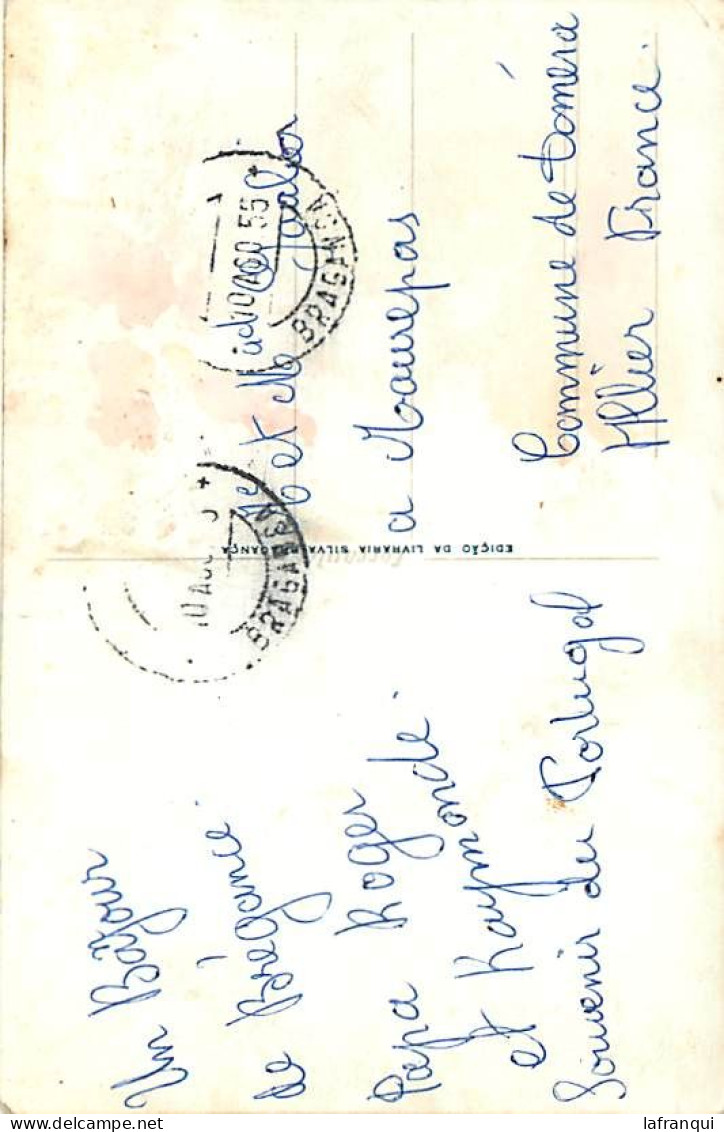 Un Bonjour
de Bragance.
Papa Roger
et Raymonde.
Souvenir du Portugal
EDIÇÃO DA LIVRARIA SILVA BRAGANÇA
10 AGO
BRAGANÇA
10 AGO 55
BRAGANÇA
et
a Maurepas
Commune de Doméra
Allier France.
lafranqui